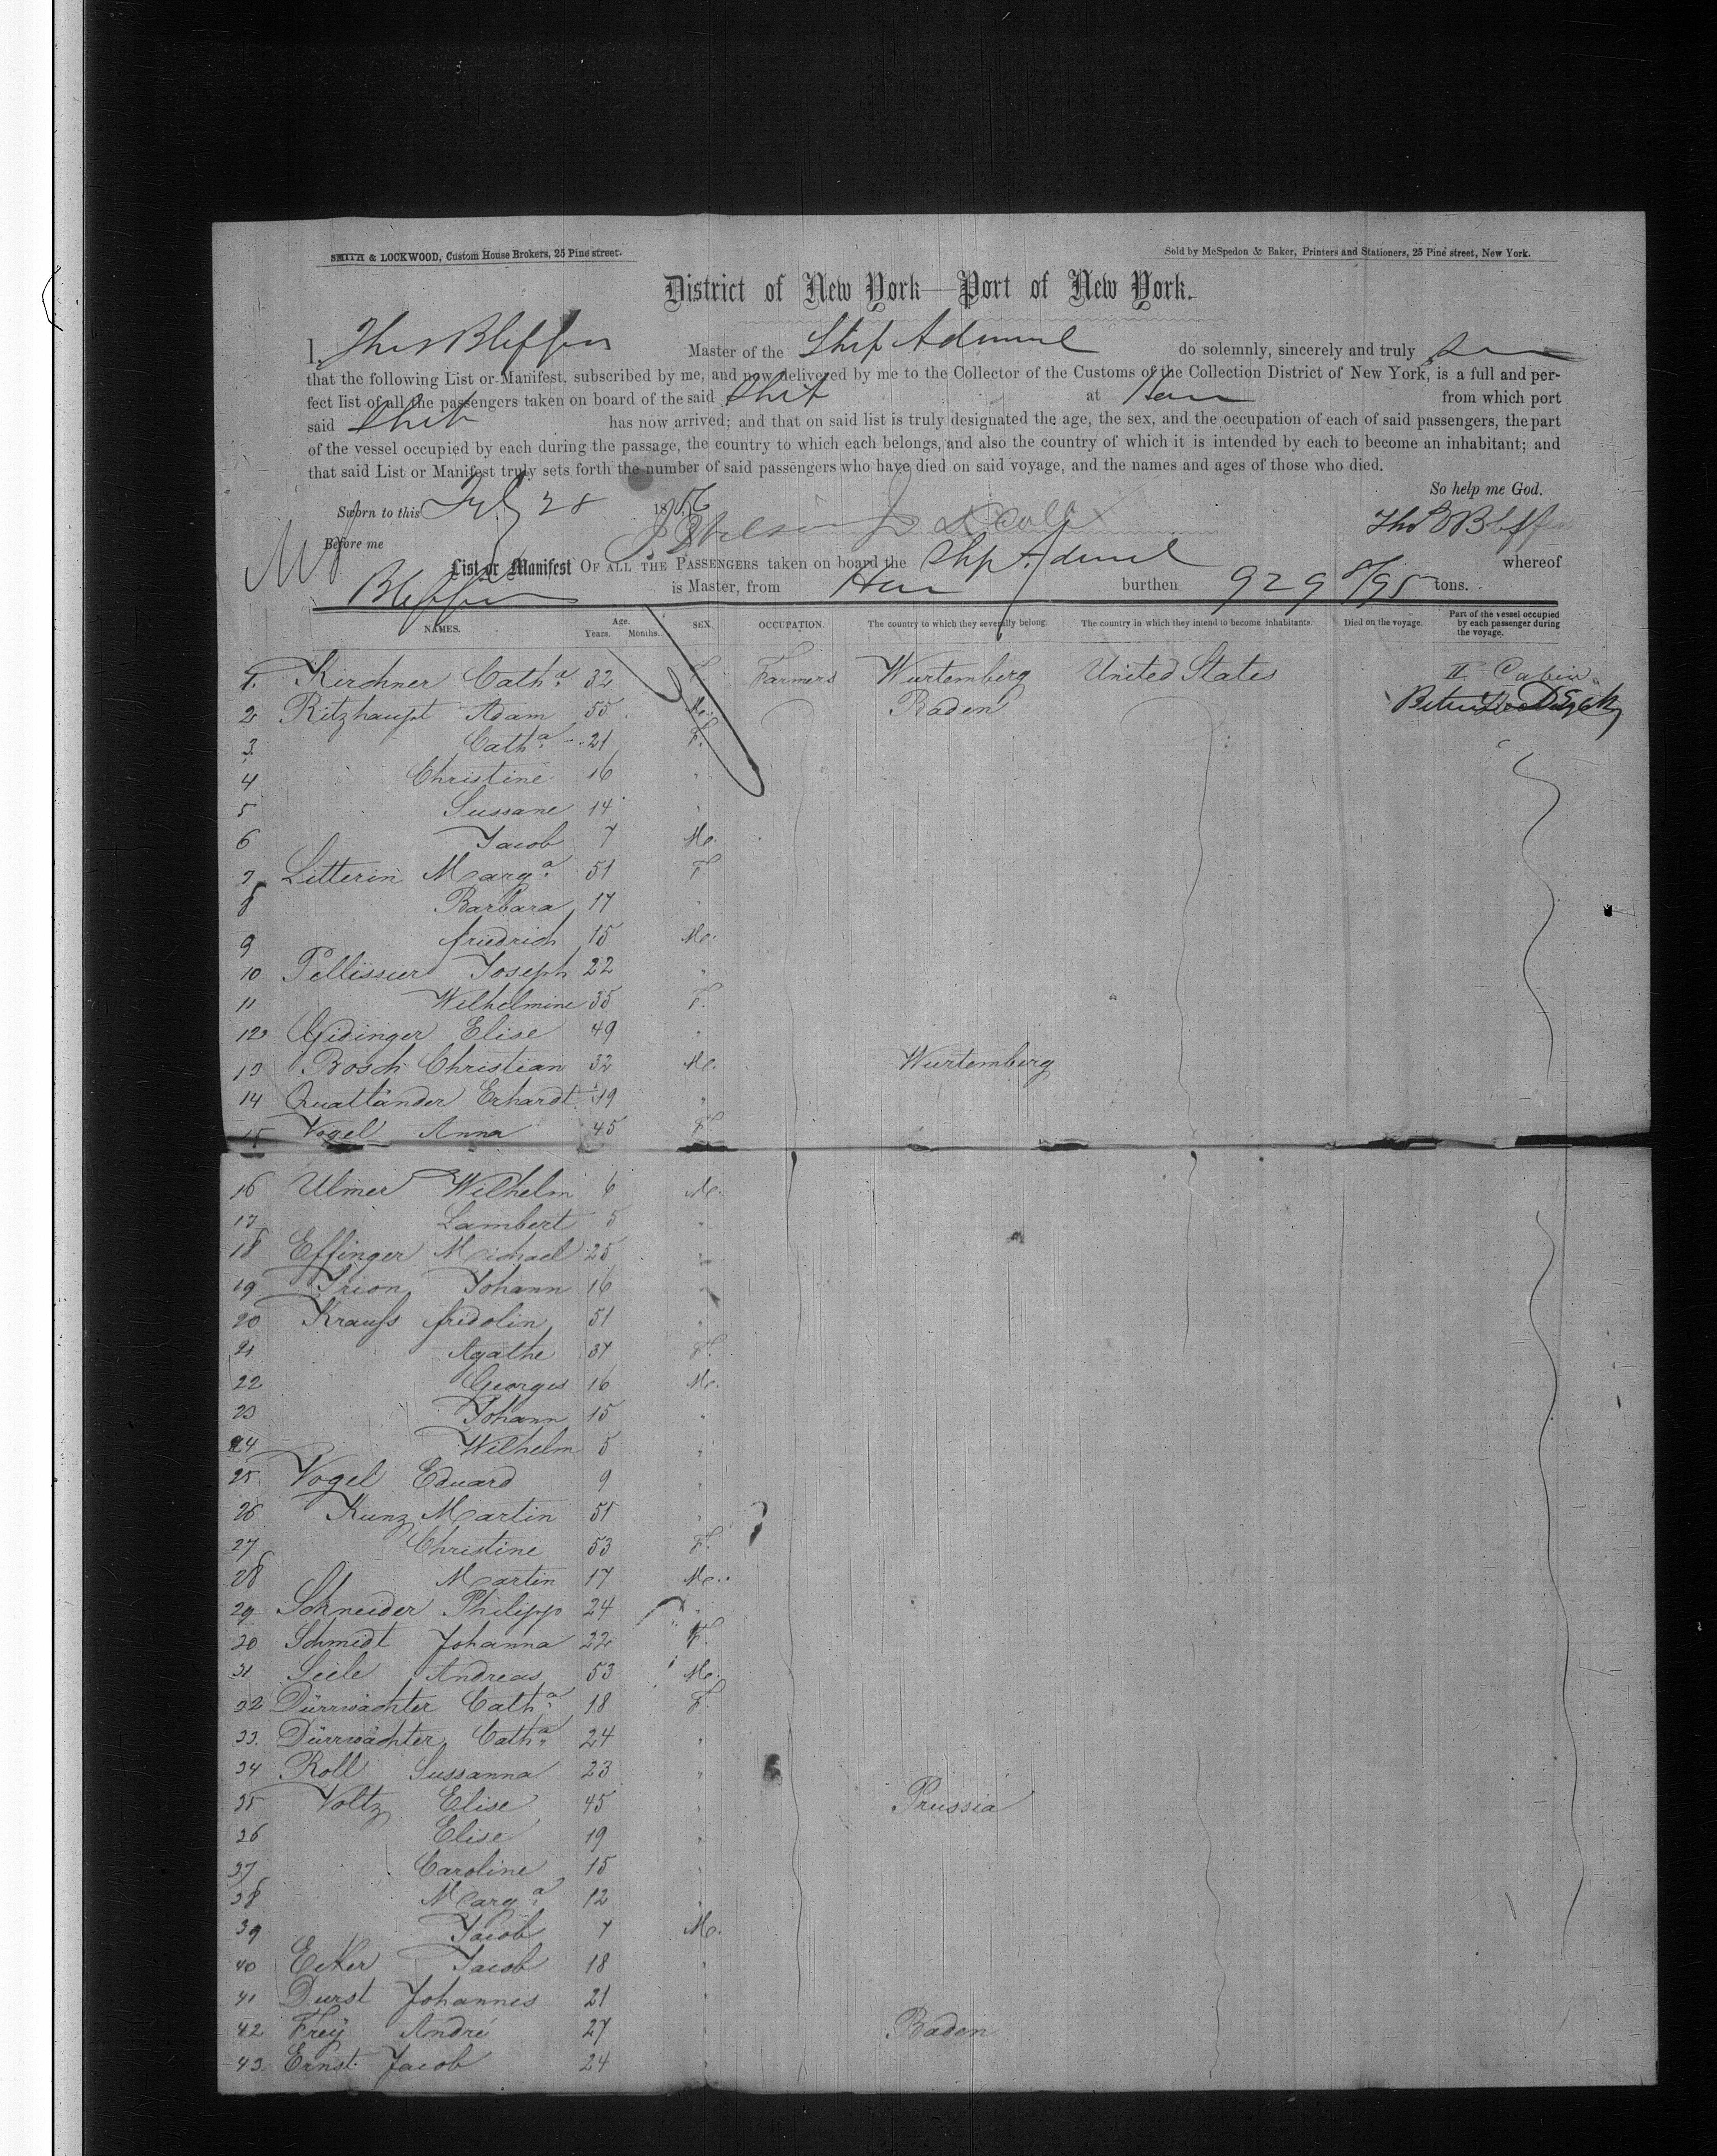 SMITH & LOCKWOOD, Custom House Brokers, 25 Pine street.
Sold by McSpedon & Baker, Printers and Stationers, 25 Pine street, New York.
District of New York—Port of New York.
I, Thos Bliffins Master of the Ship Admiral do solemnly, sincerely and truly
that the following List or Manifest, subscribed by me, and now delivered by me to the Collector of the Customs of the Collection District of New York, is a full and per-
fect list of all the passengers taken on board of the said Ship at Havre from which port
said Ship has now arrived; and that on said list is truly designated the age, the sex, and the occupation of each of said passengers, the part
of the vessel occupied by each during the passage, the country to which each belongs, and also the country of which it is intended by each to become an inhabitant; and
that said List or Manifest truly sets forth the number of said passengers who have died on said voyage, and the names and ages of those who died.
So help me God.
Sworn to this July 28 1856
Before me
List or Manifest OF ALL THE PASSENGERS taken on board the Ship Admiral whereof
is Master, from Havre burthen 929 8/95 tons.
NAMES. Age. Years. Months. SEX. OCCUPATION. The country to which they severally belong. The country in which they intend to become inhabitants. Died on the voyage. Part of the vessel occupied by each passenger during the voyage.
1. Kirchner Catha. 32 F. Farmers Wurtemberg United States II Cabin
2 Ritzhaupt Adam 55 M. Baden
3. Catha. 21 F.
4 Christine 16 "
5 Sussane 14 "
6 Jacob 7 M.
7 Litterin Marga. 51 F
8 Barbara 17 "
9 friedrich 15 M.
10 Pellissier Joseph 22 "
11 Wilhelmine 35 F.
12 Gidinger Elise 49 "
13 Bosch Christian 32 M. Wurtemberg
14 Quattländer Erhardt 19 "
15 Vogel Anna 45 F.
16 Ulmer Wilhelm 6 M.
17 Lambert 5 "
18 Effinger Michael 25 "
19 Trion Johann 16 "
20 Krauss fridolin 51 "
21 Agathe 37 F.
22 Georges 16 M.
23 Johann 15 "
24 Wilhelm 5 "
25 Vogel Eduard 9 "
26 Kunz Martin 51 "
27 Christine 53 F.
28 Martin 17 M.
29 Schneider Philipp 24 "
30 Schmidt Johanna 22 F.
31 Seele Andreas 53 M.
32 Dürrwächter Catha. 18 F.
33. Dürrwächter Catha. 24 "
34 Roll Sussanna 23 "
35 Voltz Elise 45 " Prussia
36 Elise 19 "
37 Caroline 15 "
38 Marga. 12 "
39 Jacob 7 M.
40 Ecker Jacob 18 "
41 Durst Johannes 21 "
42 Freÿ André 27 " Baden
43. Ernst Jacob 24 "